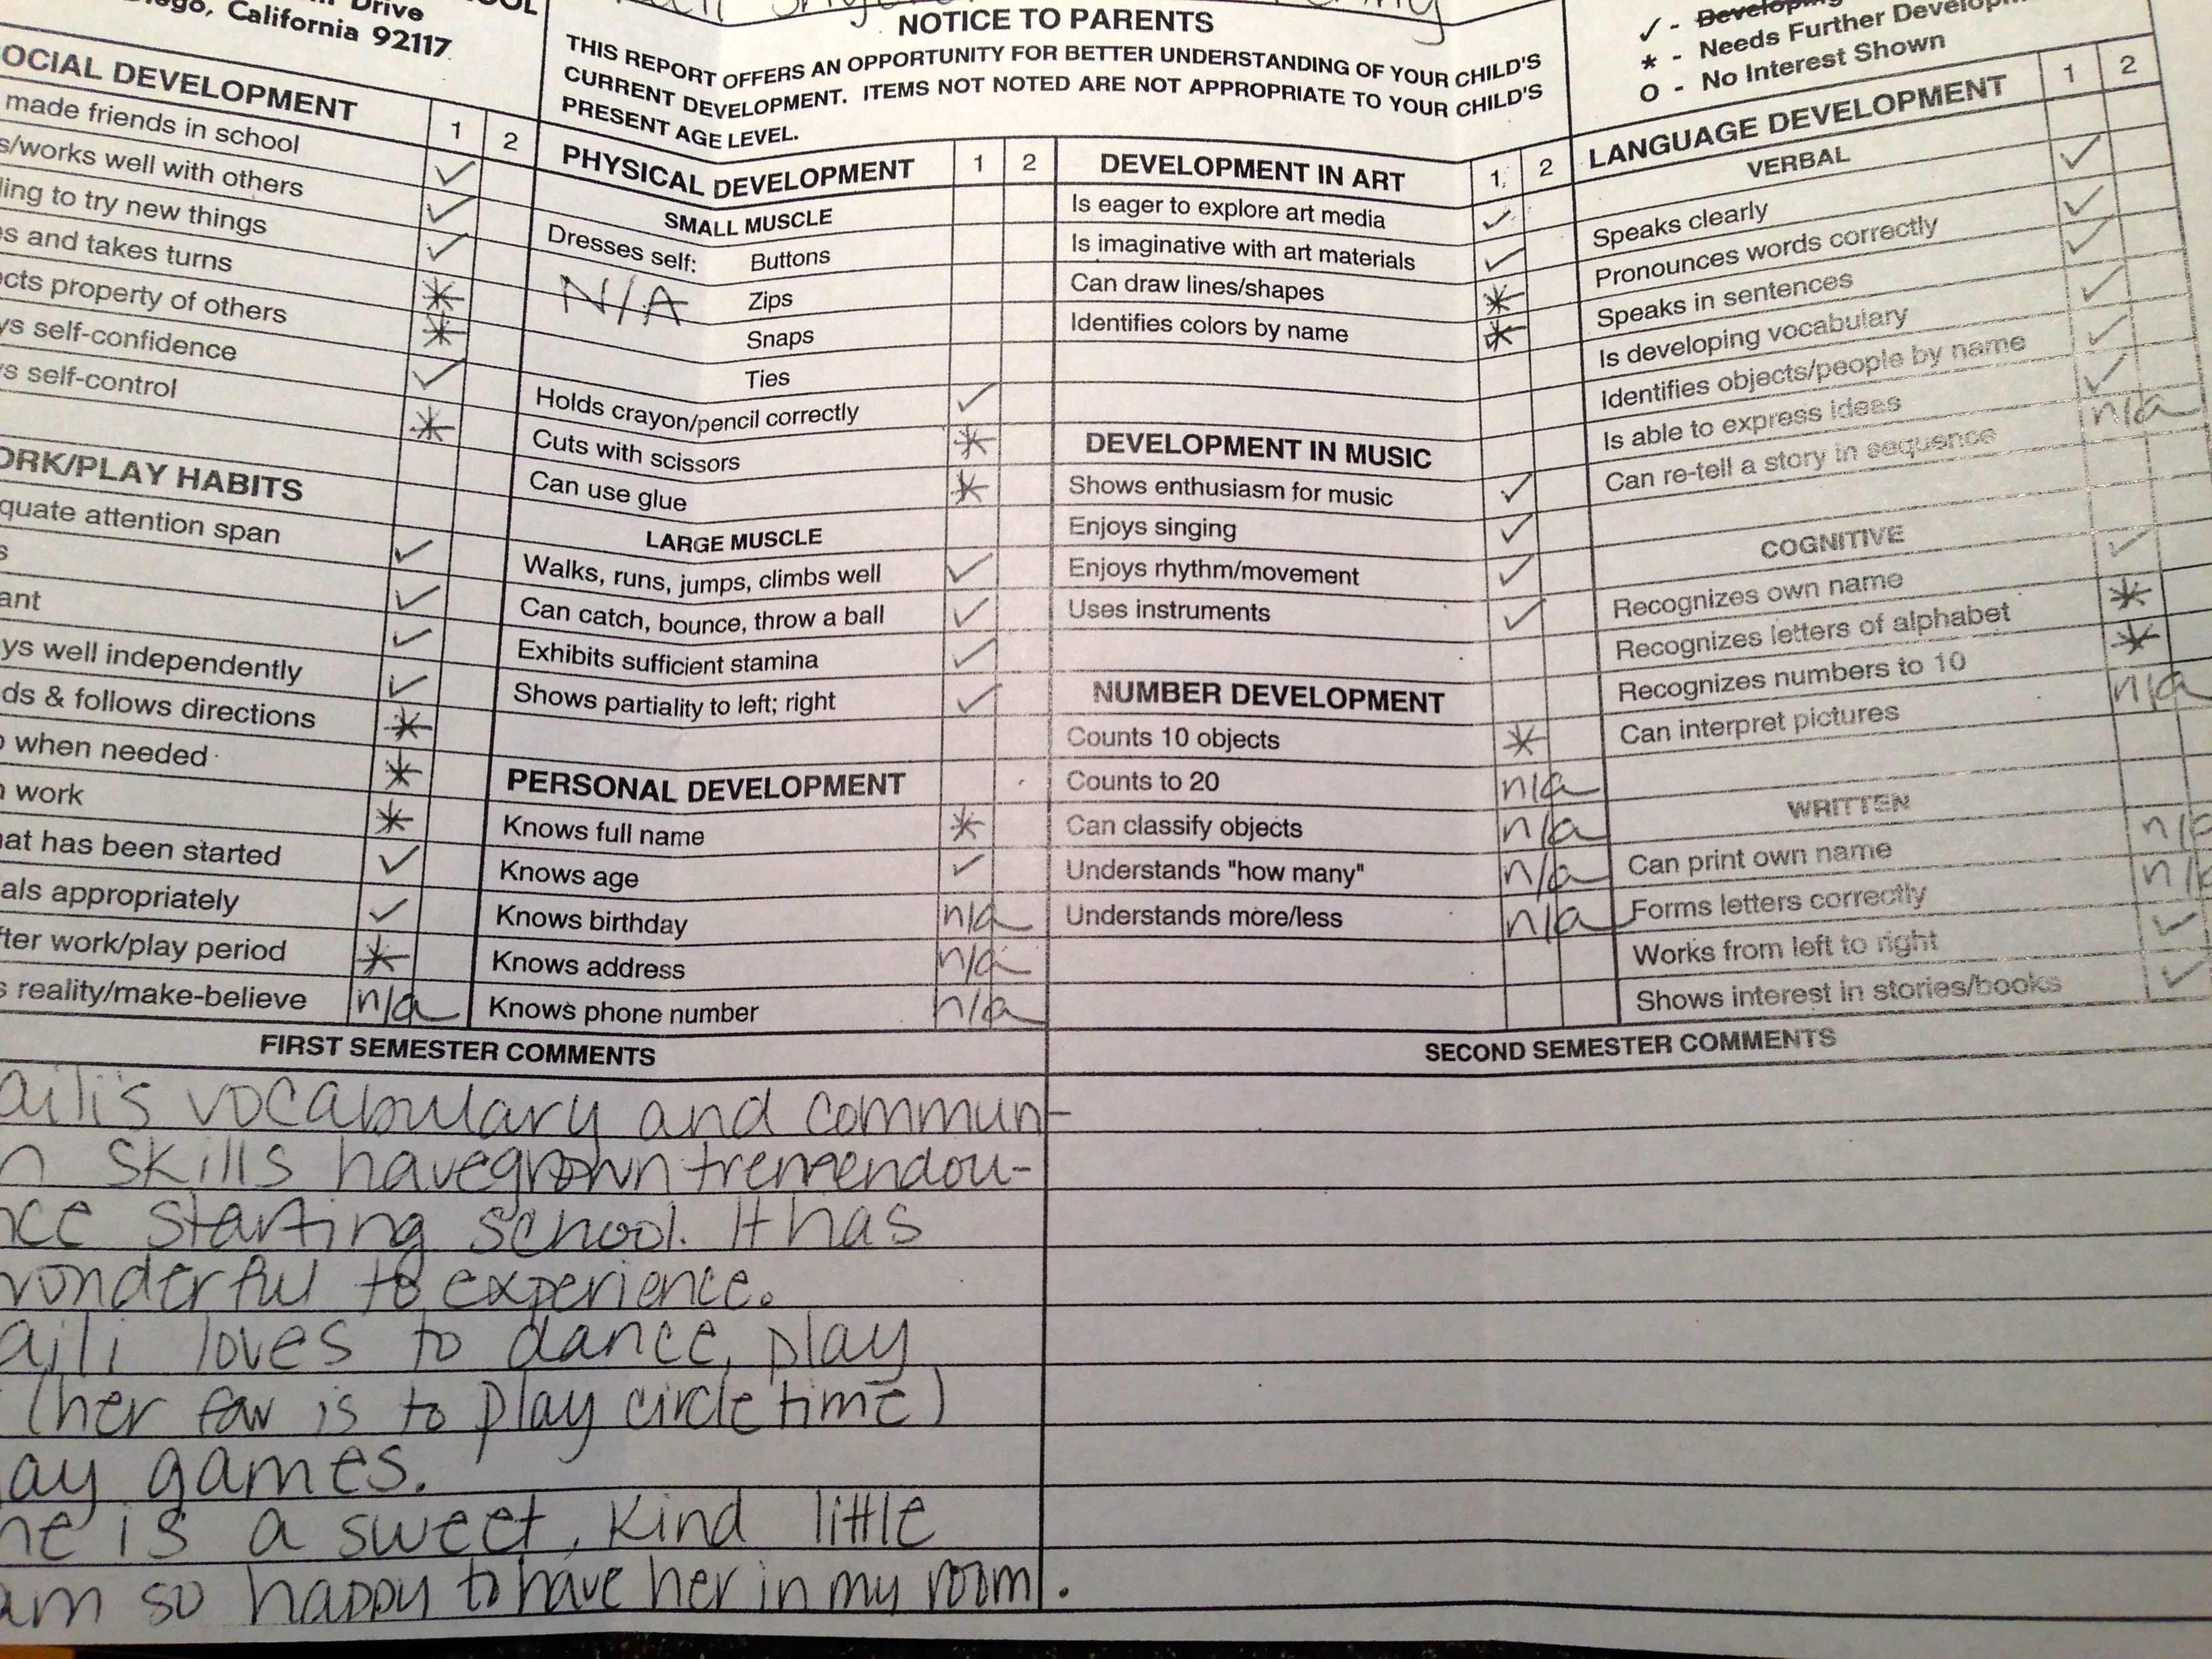 Drive
California 92117
NOTICE TO PARENTS
THIS REPORT OFFERS AN OPPORTUNITY FOR BETTER UNDERSTANDING OF YOUR CHILD'S
CURRENT DEVELOPMENT. ITEMS NOT NOTED ARE NOT APPROPRIATE TO YOUR CHILD'S
PRESENT AGE LEVEL.
✓ - Developing
* - Needs Further
O - No Interest Shown
OCIAL DEVELOPMENT 1 2
made friends in school ✓
s/works well with others ✓
ling to try new things ✓
es and takes turns *
cts property of others *
ys self-confidence ✓
ys self-control *
ORK/PLAY HABITS
quate attention span ✓
s ✓
ant ✓
ys well independently ✓
ds & follows directions *
p when needed *
n work *
hat has been started ✓
als appropriately ✓
fter work/play period *
s reality/make-believe n/a
PHYSICAL DEVELOPMENT 1 2
SMALL MUSCLE
Dresses self: Buttons
N/A Zips
Snaps
Ties
Holds crayon/pencil correctly ✓
Cuts with scissors *
Can use glue *
LARGE MUSCLE
Walks, runs, jumps, climbs well ✓
Can catch, bounce, throw a ball ✓
Exhibits sufficient stamina ✓
Shows partiality to left; right ✓
PERSONAL DEVELOPMENT
Knows full name *
Knows age ✓
Knows birthday n/a
Knows address n/a
Knows phone number n/a
DEVELOPMENT IN ART 1 2
Is eager to explore art media ✓
Is imaginative with art materials ✓
Can draw lines/shapes *
Identifies colors by name *
DEVELOPMENT IN MUSIC
Shows enthusiasm for music ✓
Enjoys singing ✓
Enjoys rhythm/movement ✓
Uses instruments ✓
NUMBER DEVELOPMENT
Counts 10 objects *
Counts to 20 n/a
Can classify objects n/a
Understands "how many" n/a
Understands more/less n/a
LANGUAGE DEVELOPMENT 1 2
VERBAL
Speaks clearly ✓
Pronounces words correctly ✓
Speaks in sentences ✓
Is developing vocabulary ✓
Identifies objects/people by name ✓
Is able to express ideas ✓
Can re-tell a story in sequence n/a
COGNITIVE
Recognizes own name ✓
Recognizes letters of alphabet *
Recognizes numbers to 10 *
Can interpret pictures n/a
WRITTEN
Can print own name n/a
Forms letters correctly n/a
Works from left to right ✓
Shows interest in stories/books ✓
FIRST SEMESTER COMMENTS
aili's vocabulary and commun-
n skills have grown tremendou-
nce starting school. It has
wonderful to experience.
aili loves to dance, play
(her fav is to play circle time)
ay games.
he is a sweet, kind little
am so happy to have her in my room.
SECOND SEMESTER COMMENTS